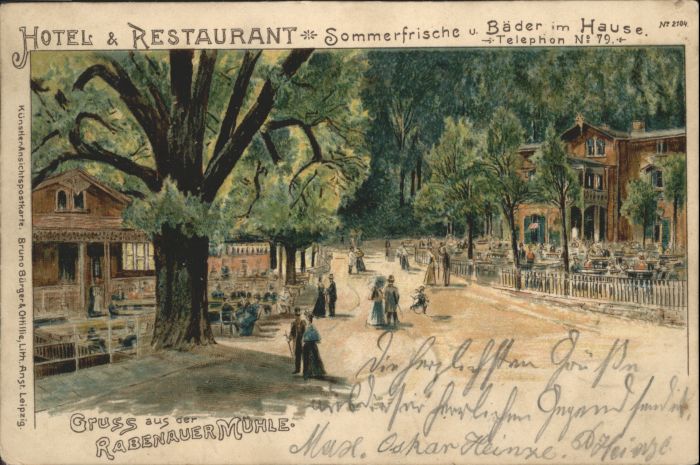 HOTEL & RESTAURANT Sommerfrische u. Bäder im Hause.
Telephon No 79.
No 2104.
Künstler Ansichtspostkarte. Bruno Bürger & Ottillie, Lith. Anst. Leipzig.
Gruss aus der
RABENAUER MÜHLE.
Die herzlichsten Grüße
aus dieser herrlichen Gegend sendet
Max. Oskar Heinze. Heinze